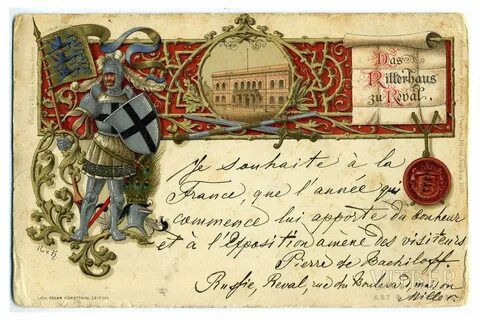 Das
Ritterhaus
zu Reval.
Je souhaite à la
France, que l'année qui
commence lui apporte du bonheur
et à l'Exposition amène des visiteurs
Pierre de
Russie, Reval, rue du Boulevard, maison
Miller.
LITH. OSCAR FÜRSTENAU, LEIPZIG